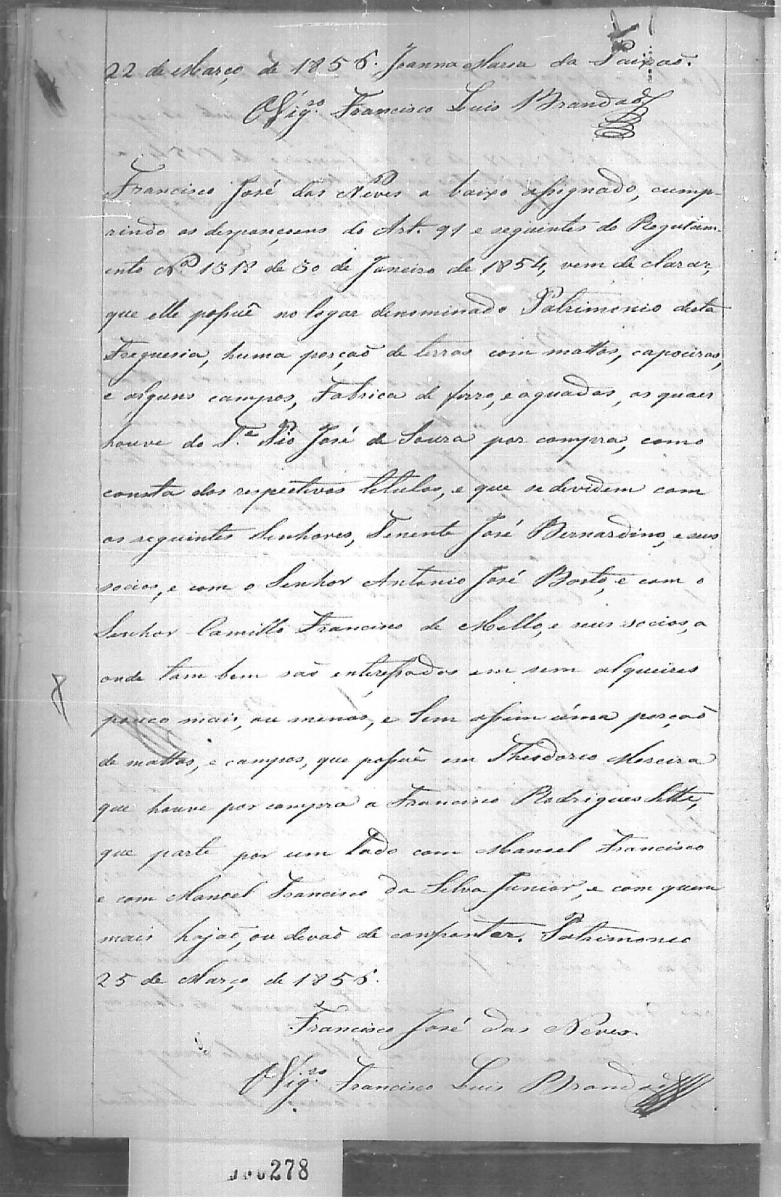 22 de Março de 1856. Joanna Maria da Paixaõ.
O Vigr.o Francisco Luis Brandaõ
Francisco José das Neves a baixo assignado, cump-
rindo as despançoens do Art. 91 e seguintes do Regulam-
ento N.o 1318 de 30 de Janeiro de 1854, vem de clarar,
que elle possuê no logar denominado Patrimonio desta
Freguesia, huma porçaõ de terras com mattos, capoeiras,
e alguns campos, Fabrica de ferro, e aguadas, as quaes
houve do T.e Pio José de Souza por compra, como
consta dos respectivos titulos, e que se devidem com
os seguintes Senhores, Tenente José Bernardino, e seus
socios, e com o Senhor Antonio José, e com o
Senhor Camillo Francisco de Mello, e seus socios, a
onde tam bem saõ enteressados em sem alqueires
pouco mais, ou menos, e bem assim uma porçaõ
de mattos, e campos, que possuê em Theodoro Moreira
que houve por compra a Francisco Rodrigues,
que parte por um lado com Manoel Francisco
e com Manoel Francisco da Silva Junior, e com quem
mais hajaõ, ou devaõ de confrontar. Patrimonio
25 de Março de 1856.
Francisco José das Neves.
O Vigr.o Francisco Luis Brandaõ
278